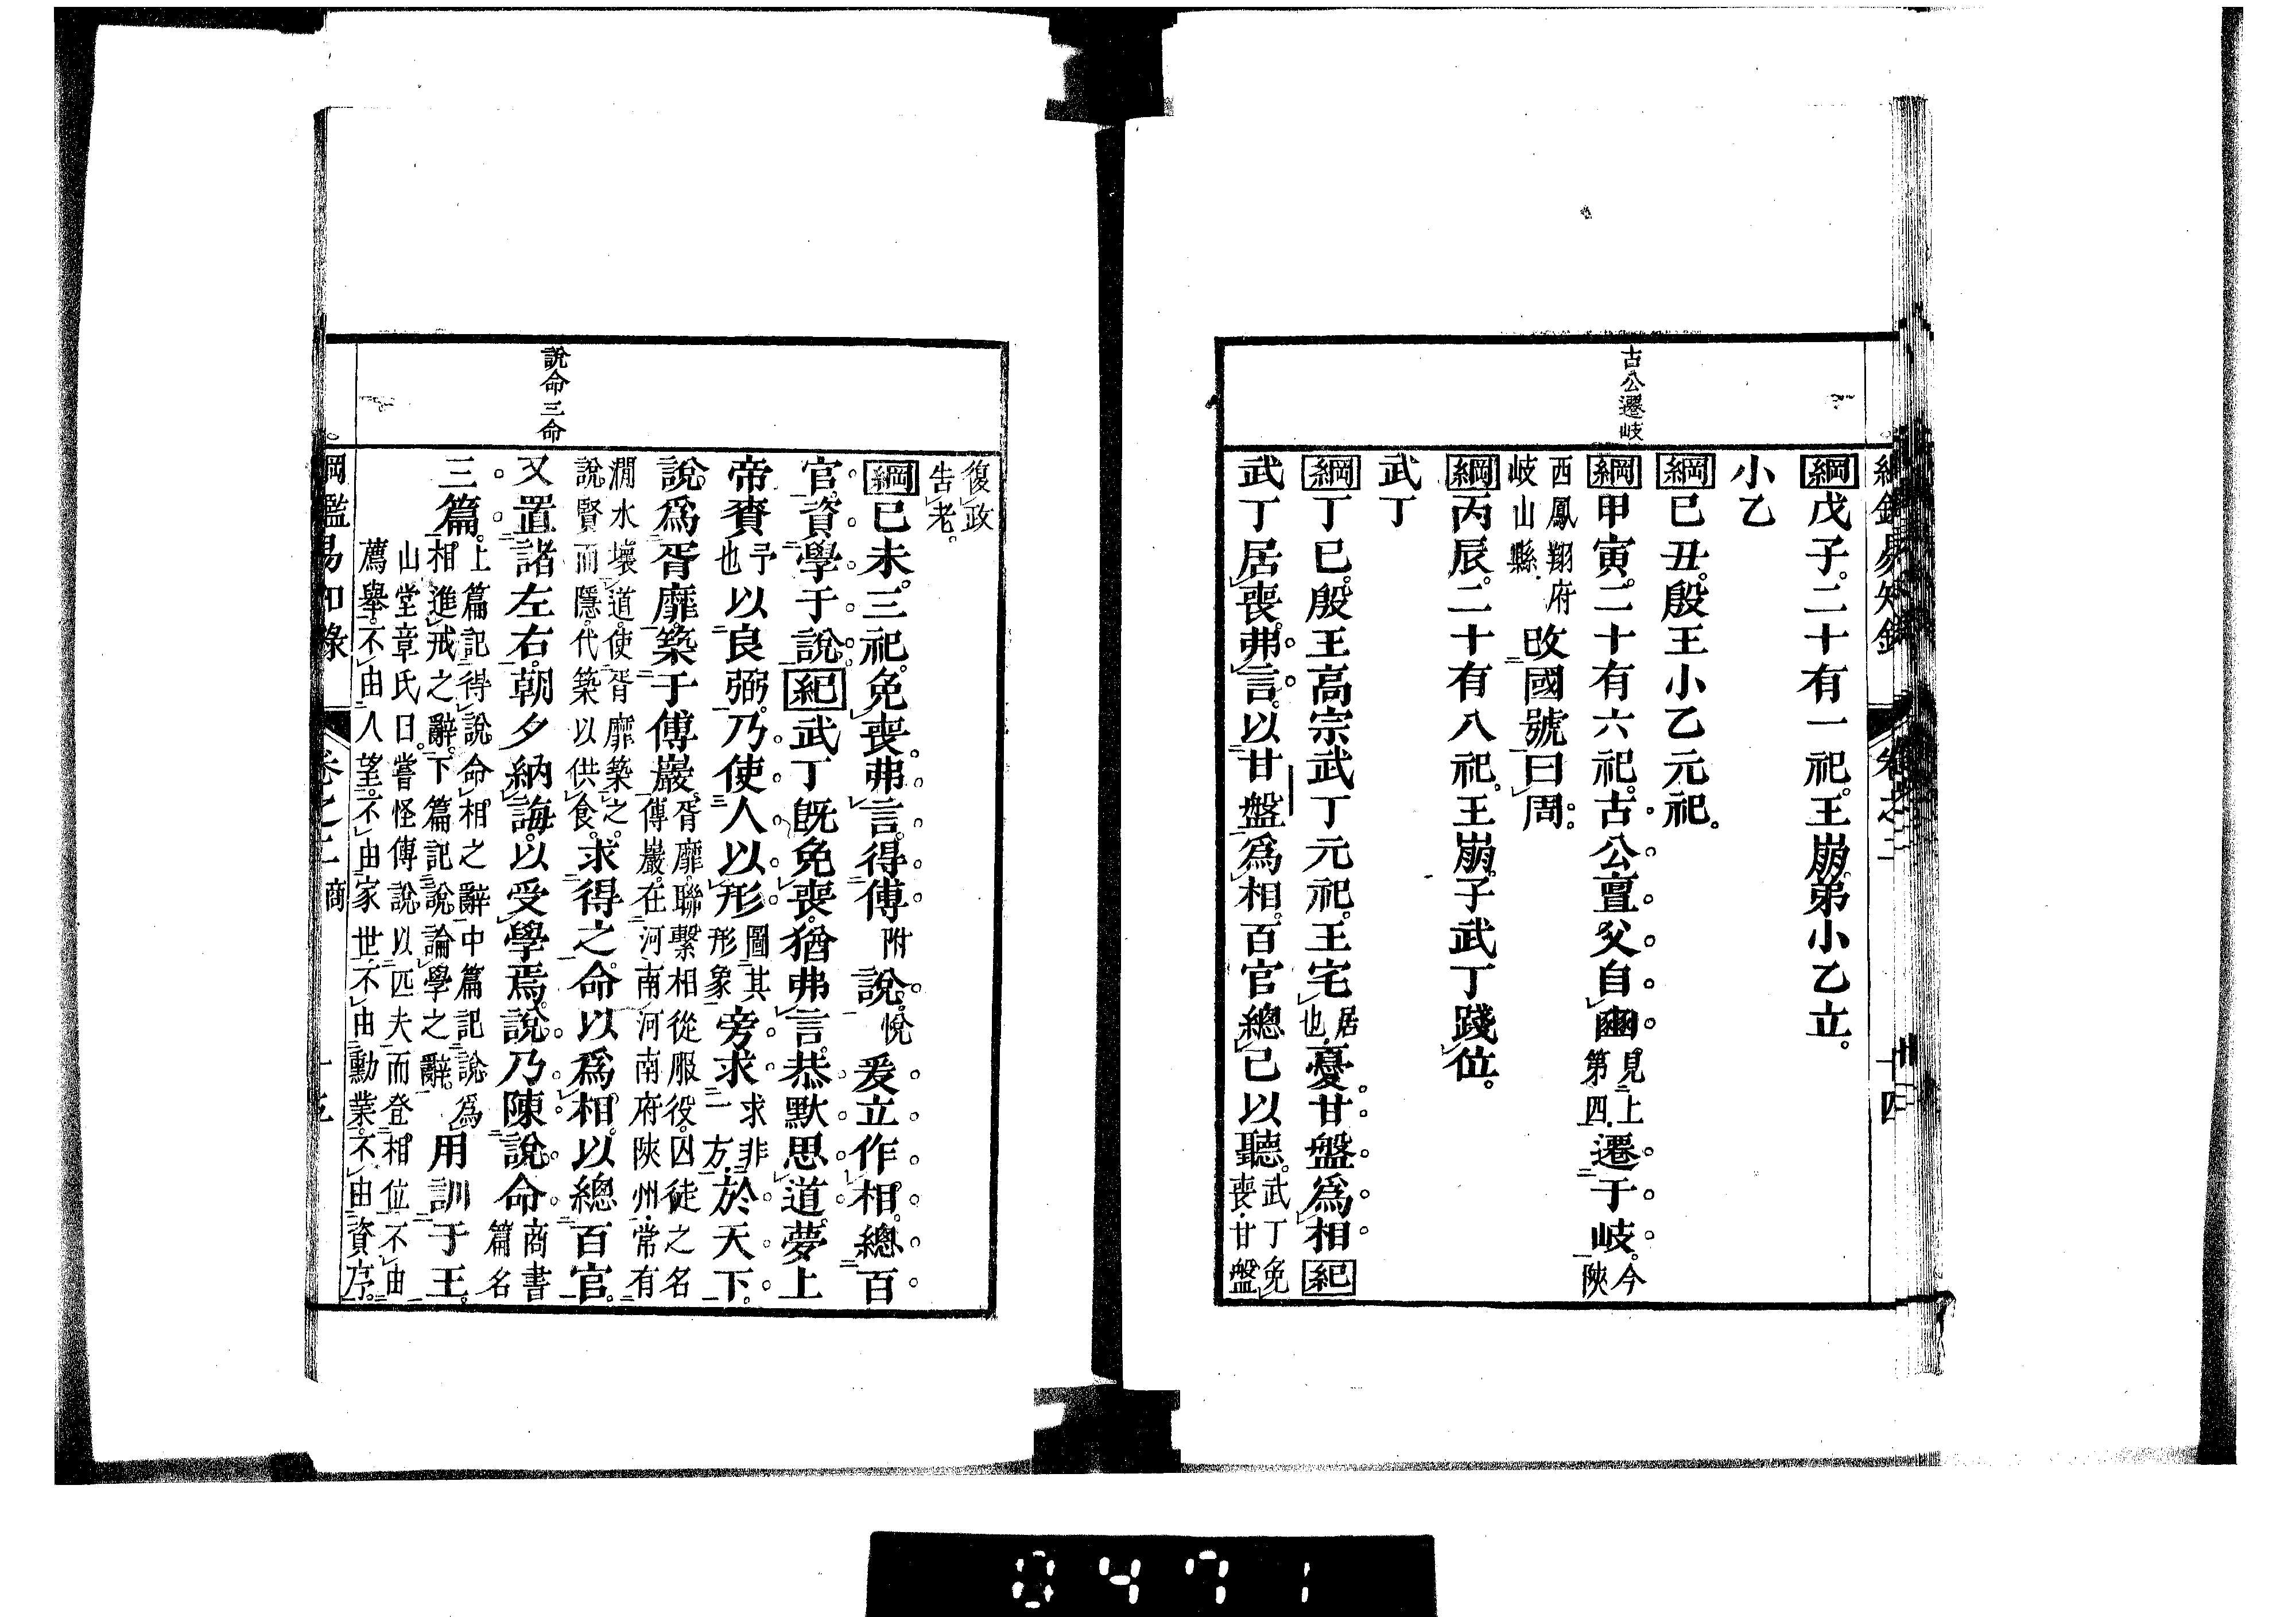 綱鑑易知錄 卷之二 十四
古公遷岐
綱戊子。二十有一祀。王崩。弟小乙立。
小乙
綱己丑。殷王小乙元祀。
綱甲寅。二十有六祀。古公亶父自豳見上第四。遷于岐。今陝
西鳳翔府岐山縣。改國號曰周。
綱丙辰。二十有八祀。王崩。子武丁踐位。
武丁
綱丁巳。殷王高宗武丁元祀。王宅居也。憂。甘盤爲相。紀
武丁居喪。弗言。以甘盤爲相。百官總己以聽。武丁免喪。甘盤
復政告老。
說命三命
綱己未。三祀。免喪。弗言。得傅附說。悅爰立作相。總百
官。資學于說。紀武丁既免喪。猶弗言。恭默思道。夢上
帝賚予也以良弼。乃使人以形圖其形象旁求求非一方。於天下。
說爲胥靡。築于傅巖。胥靡。聯繫相從服役。囚徒之名傅巖。在河南河南府陝州。常有
澗水壞道。使胥靡築之。說賢而隱。代築以供食。求得之。命以爲相。以總百官。
又置諸左右。朝夕納誨。以受學焉。說乃陳說命商書篇名
三篇。上篇記得說命相之辭。中篇記說爲相進戒之辭。下篇記說論學之辭。用訓于王。
山堂章氏曰。嘗怪傅說以匹夫而登相位。不由
薦舉。不由人望。不由家世。不由勳業。不由資序。
綱鑑易知錄 卷之二 商